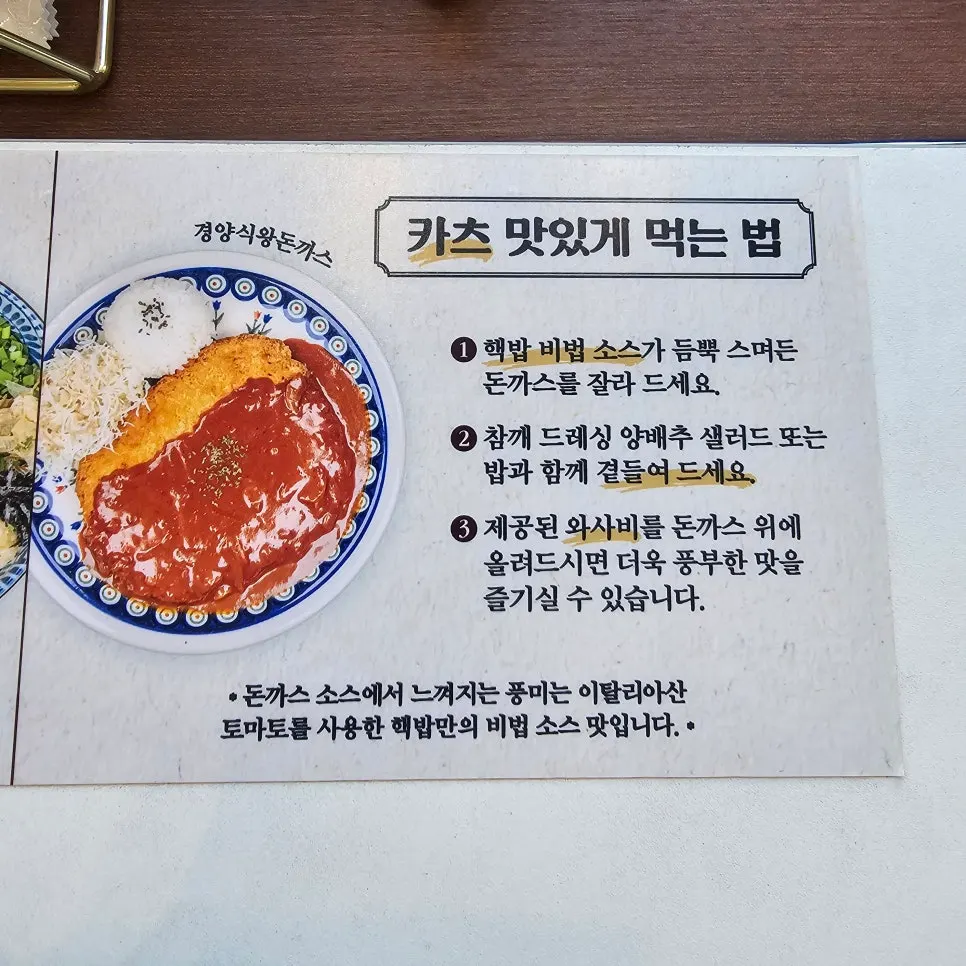 경양식왕돈까스
카츠 맛있게 먹는 법
1 핵밥 비법 소스가 듬뿍 스며든
돈까스를 잘라 드세요.
2 참깨 드레싱 양배추 샐러드 또는
밥과 함께 곁들여 드세요.
3 제공된 와사비를 돈까스 위에
올려드시면 더욱 풍부한 맛을
즐기실 수 있습니다.
• 돈까스 소스에서 느껴지는 풍미는 이탈리아산
토마토를 사용한 핵밥만의 비법 소스 맛입니다. •